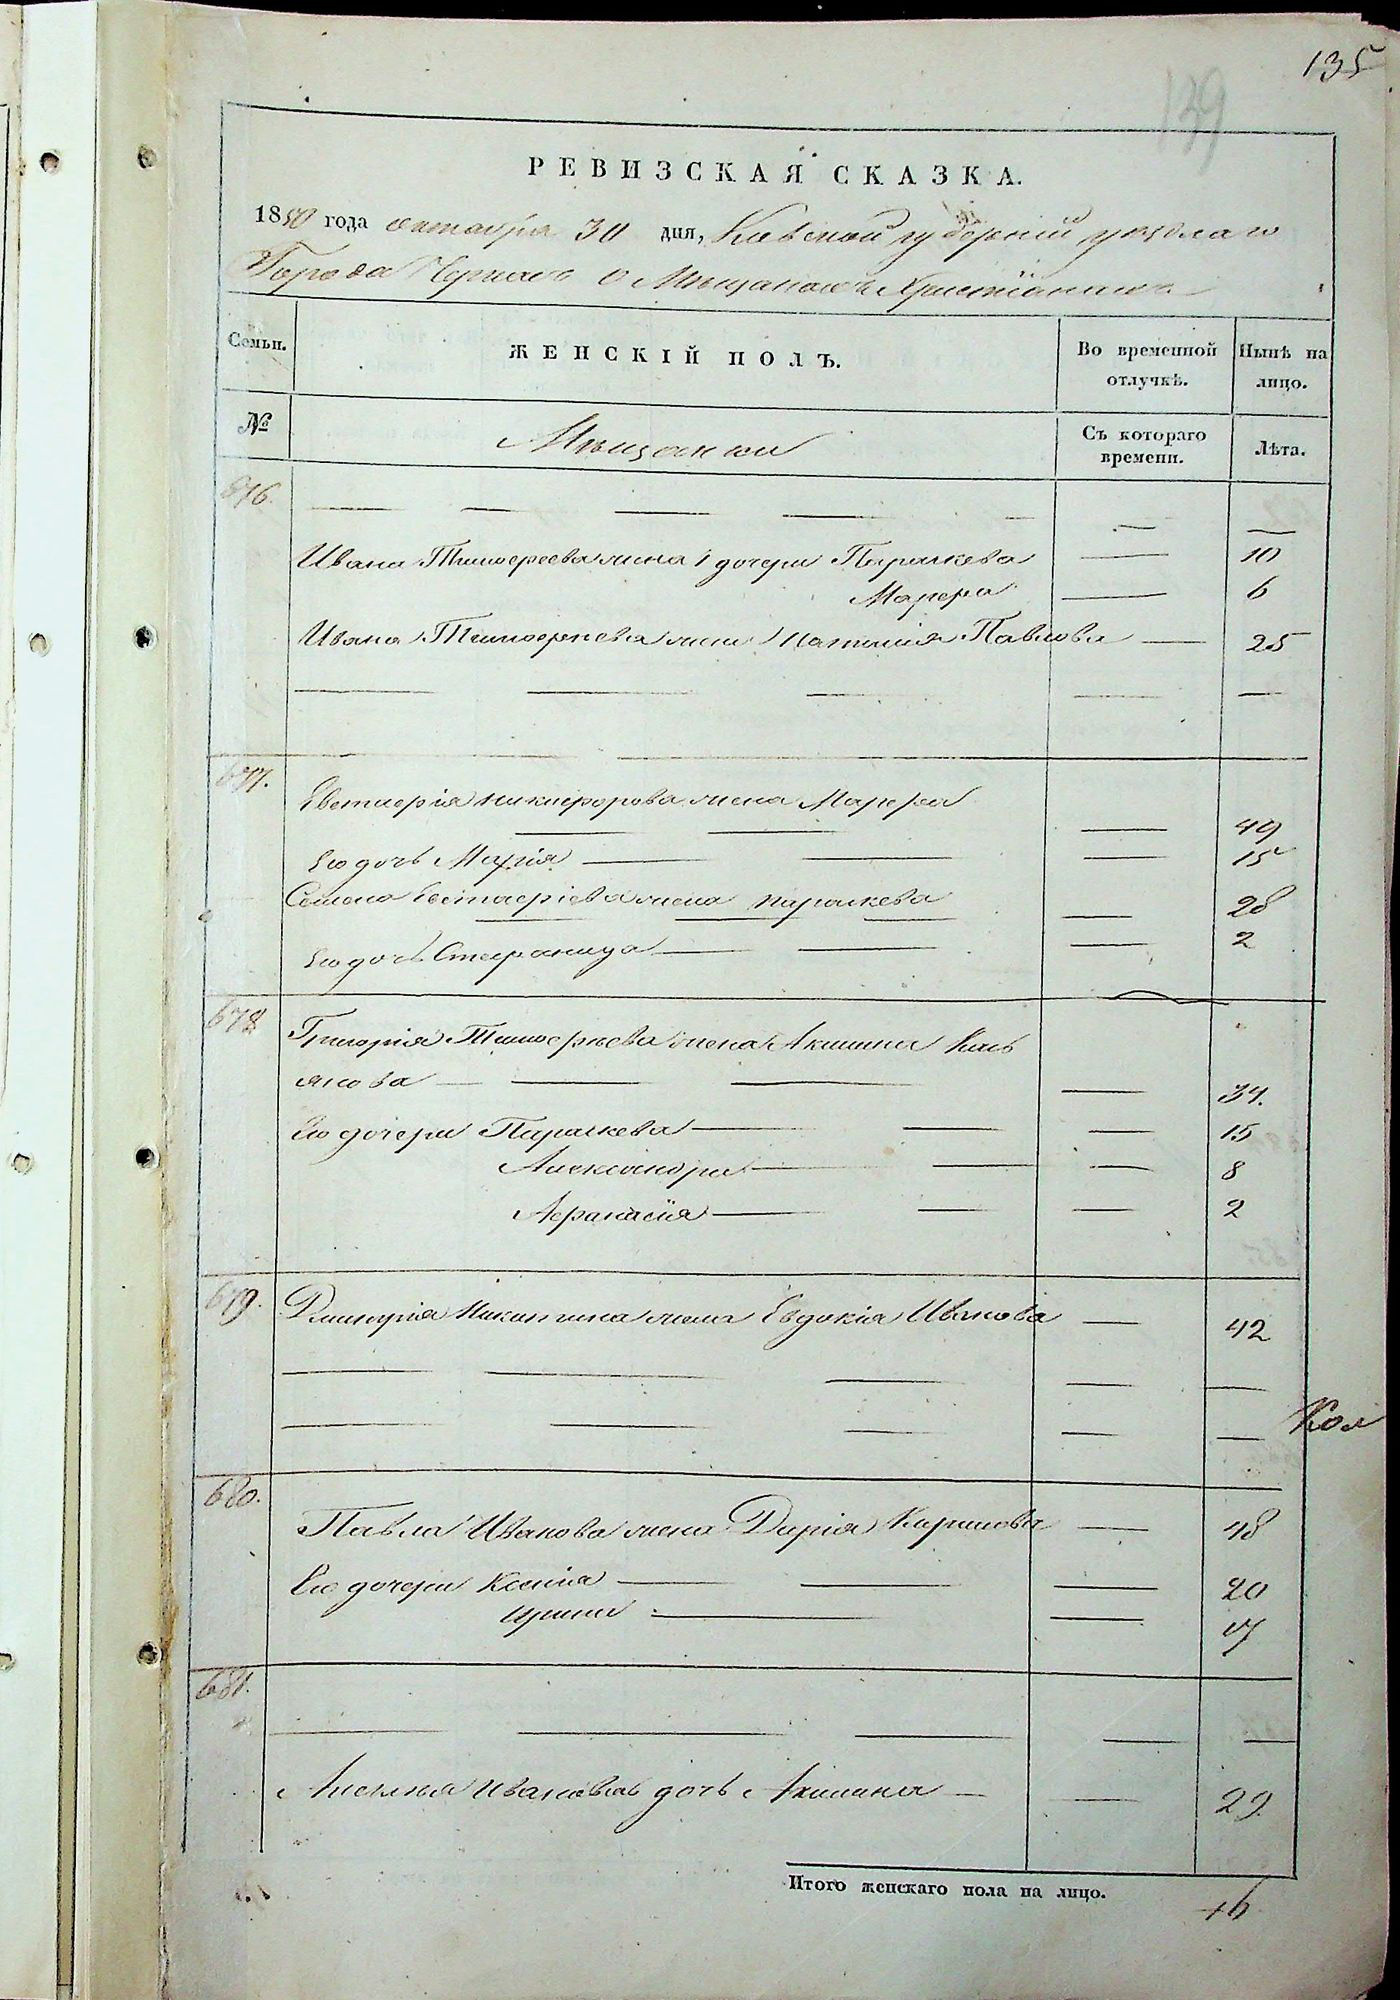 135
139
РЕВИЗСКАЯ СКАЗКА.
1850 года октября 30 дня, Киевской губерніи уезднаго
Города Черкас о Мещанах Христіанах
Семьи.
ЖЕНСКІЙ ПОЛЪ.
Во временной отлучкѣ.
Нынѣ на лицо.
№
Мещанки
Съ котораго времени.
Лѣта.
676.
Ивана Тимофеева жена 1 дочери Параскева 10
Марфа 6
Ивана Тимофеева жена Наталия Павлова 25
677.
Евстаеріа Никифорова жена Марфа 49
Его дочь Марія 15
Семена Евстаеріева жена Параскева 28
Его дочь Стефанида 2
678
Григорія Тимофеева жена Акилина Касьянова 34.
Его дочери Параскева 15
Александра 8
Афанасія 2
679.
Дмитрія Никитина жена Евдокія Иванова 42
Кол
680.
Павла Иванова жена Дарія Карпова 48
Его дочери Ксенія 20
Ирина 17
681.
Ивановъ дочь Акилина 29
Итого женскаго пола на лицо.
16